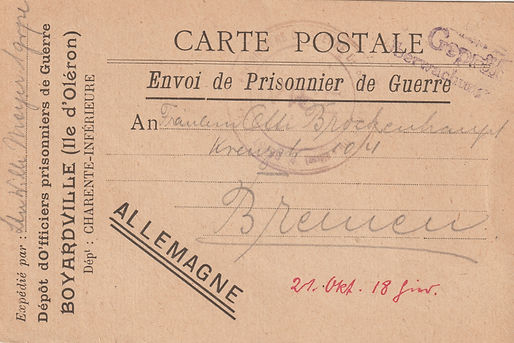 CARTE POSTALE
Envoi de Prisonnier de Guerre
An Fräulein Elli Brockenhaupt
Kreuzstr. 10/11
Bremen
ALLEMAGNE
21. Okt. 18
Expédié par : Meyer
Dépôt dOfficiers prisonniers de Guerre
BOYARDVILLE (Ile d'Oléron)
Dépt : CHARENTE-INFÉRIEURE
Geprüft